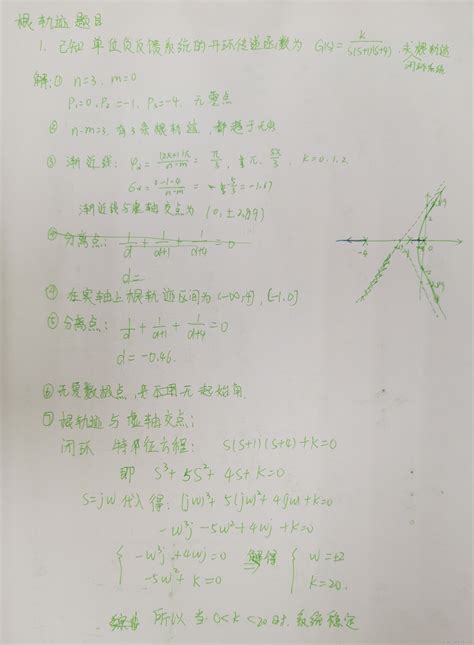 根轨迹题目
1. 已知单位负反馈系统的开环传递函数为 G(s) = K / s(s+1)(s+4), 求根轨迹
闭环系统
解: ① n=3, m=0
P₁=0, P₂=-1, P₃=-4, 无零点
② n-m=3, 有3条根轨迹, 都趋于无穷
③ 渐近线: φa = (2k+1)π / n-m = π/3, π, 5π/3, k=0,1,2
σa = 0-1-4 / n-m = -5/3 = -1.67
渐近线与虚轴交点为 (0, ±2.89)
④ 分离点: 1/d + 1/(d+1) + 1/(d+4) = 0
d=
④ 在实轴上根轨迹区间为 (-∞,4], [-1,0]
⑤ 分离点: 1/d + 1/(d+1) + 1/(d+4) = 0
d = -0.46.
⑥ 无复数放点, 无起始角.
⑦ 根轨迹与虚轴交点:
闭环 特征方程: s(s+1)(s+4)+K=0
即 s³+5s²+4s+K=0
s=jw 代入得: (jw)³+5(jw)²+4(jw)+K=0
-w³j-5w²+4wj+K=0
{ -w³j+4wj=0 解得 { w=±2
-5w²+K=0 K=20.
所以当 0<K<20时, 系统稳定
-4
-1
0